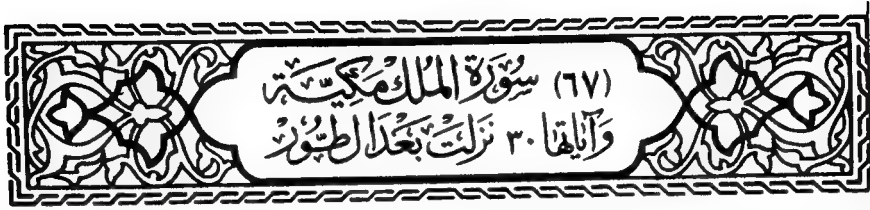 (٦٧) سُورَة المُلك مَكِيَّة
وَآيَاتها ٣٠ نَزَلَتْ بَعْدَ الطُّور